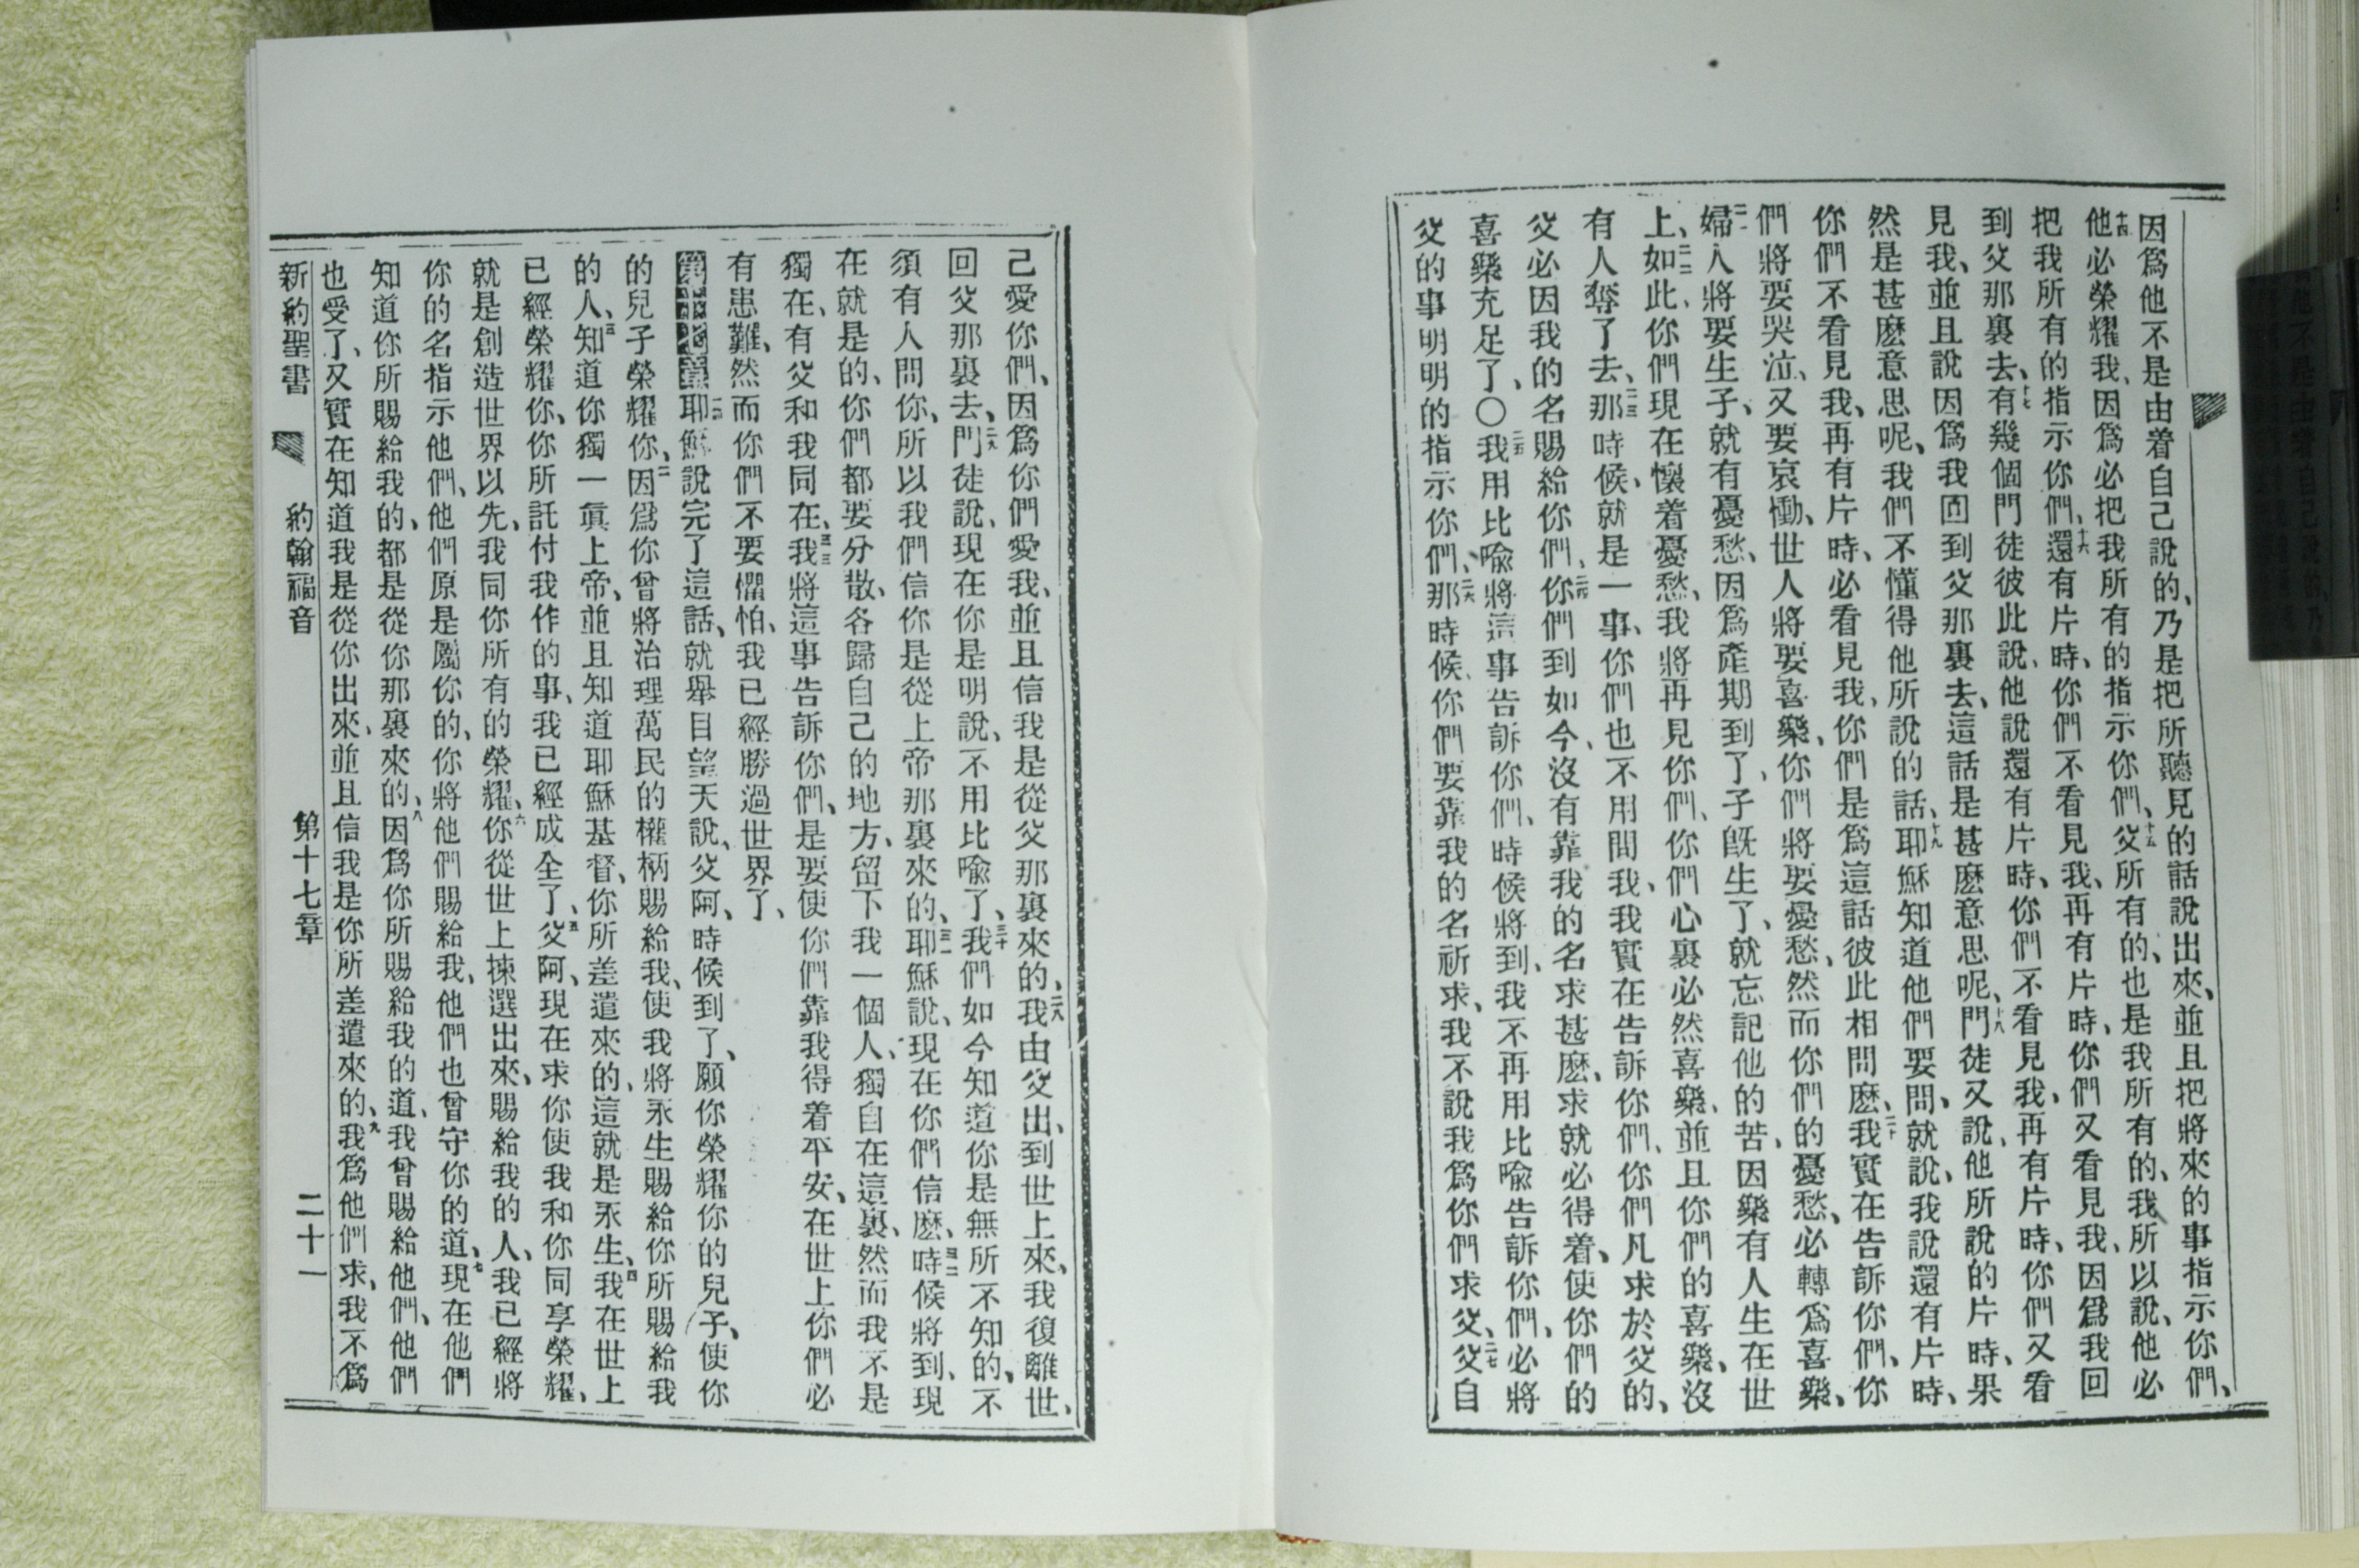 因爲他不是由着自己說的、乃是把所聽見的話說出來、並且把將來的事指示你們、
十四他必榮耀我、因爲必把我所有的指示你們、十五父所有的、也是我所有的、我所以說、他必
把我所有的指示你們、十六還有片時、你們不看見我、再有片時、你們又看見我、因爲我回
到父那裏去、十七有幾個門徒彼此說、他說還有片時、你們不看見我、再有片時、你們又看
見我、並且說因爲我回到父那裏去、這話是甚麽意思呢、十八門徒又說、他所說的片時、果
然是甚麽意思呢、我們不懂得他所說的話、十九耶穌知道他們要問、就說、我說還有片時、
你們不看見我、再有片時、必看見我、你們是爲這話彼此相問麽、二十我實在告訴你們、你
們將要哭泣、又要哀慟、世人將要喜樂、你們將要憂愁、然而你們的憂愁、必轉爲喜樂、
二一婦人將要生子、就有憂愁、因爲產期到了、子既生了、就忘記他的苦、因樂有人生在世
上、二二如此、你們現在懷着憂愁、我將再見你們、你們心裏必然喜樂、並且你們的喜樂、沒
有人奪了去、二三那時候、就是一事、你們也不用問我、我實在告訴你們、你們凡求於父的、
父必因我的名賜給你們、二四你們到如今、沒有靠我的名求甚麽、求就必得着、使你們的
喜樂充足了、〇二五我用比喩將這事告訴你們、時候將到、我不再用比喩告訴你們、必將
父的事明明的指示你們、二六那時候、你們要靠我的名祈求、我不說我爲你們求父、二七父自
己愛你們、因爲你們愛我、並且信我是從父那裏來的、二八我由父出、到世上來、我復離世、
回父那裏去、二九門徒說、現在你是明說、不用比喩了、三十我們如今知道你是無所不知的、不
須有人問你、所以我們信你是從上帝那裏來的、三一耶穌說、現在你們信麽、三二時候將到、現
在就是的、你們都要分散、各歸自己的地方、留下我一個人、獨自在這裏、然而我不是
獨在、有父和我同在、三三我將這事告訴你們、是要使你們靠我得着平安、在世上你們必
有患難、然而你們不要懼怕、我已經勝過世界了、
第十七章一耶穌說完了這話、就舉目望天說、父阿、時候到了、願你榮耀你的兒子、使你
的兒子榮耀你、二因爲你曾將治理萬民的權柄賜給我、使我將永生賜給你所賜給我
的人、三知道你獨一眞上帝、並且知道耶穌基督、你所差遣來的、這就是永生、四我在世上
已經榮耀你、你所託付我作的事、我已經成全了、五父阿、現在求你使我和你同享榮耀、
就是創造世界以先、我同你所有的榮耀、六你從世上揀選出來、賜給我的人、我已經將
你的名指示他們、他們原是屬你的、你將他們賜給我、他們也曾守你的道、七現在他們
知道你所賜給我的、都是從你那裏來的、八因爲你所賜給我的道、我曾賜給他們、他們
也受了、又實在知道我是從你出來、並且信我是你所差遣來的、九我爲他們求、我不爲
新約聖書 約翰福音 第十七章 二十一